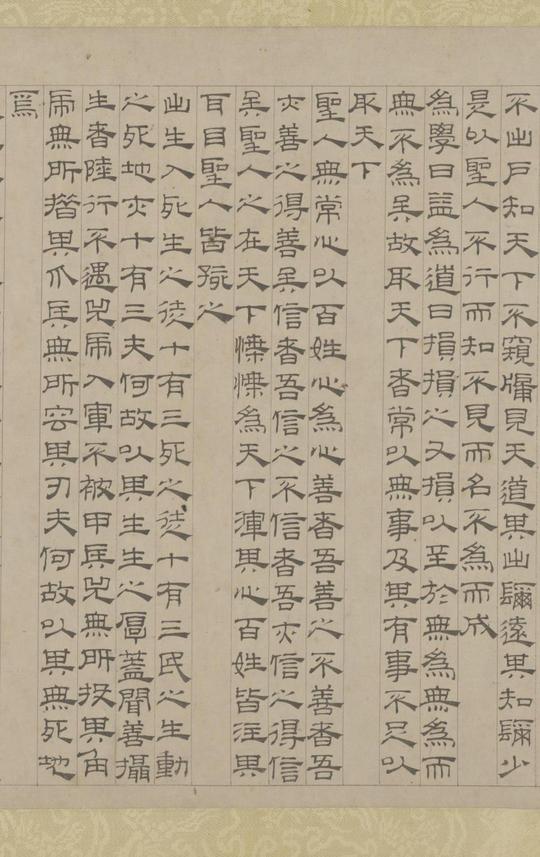 不出戶知天下不窺牖見天道其出彌遠其知彌少
是以聖人不行而知不見而名不為而成
為學日益為道日損損之又損以至於無為無為而
無不為矣故取天下者常以無事及其有事不足以
取天下
聖人無常心以百姓心為心善者吾善之不善者吾
亦善之得善矣信者吾信之不信者吾亦信之得信
矣聖人之在天下惵惵為天下渾其心百姓皆注其
耳目聖人皆孩之
出生入死生之徒十有三死之徒十有三民之生動
之死地亦十有三夫何故以其生生之厚蓋聞善攝
生者陸行不遇兕虎入軍不被甲兵兕無所投其角
虎無所措其爪兵無所容其刃夫何故以其無死地
焉